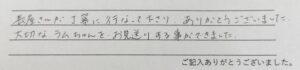 長屋さんが丁寧に行なって下さり、ありがとうございました。
大切なラムちゃんを、お見送りする事ができました。
ご記入ありがとうございました。